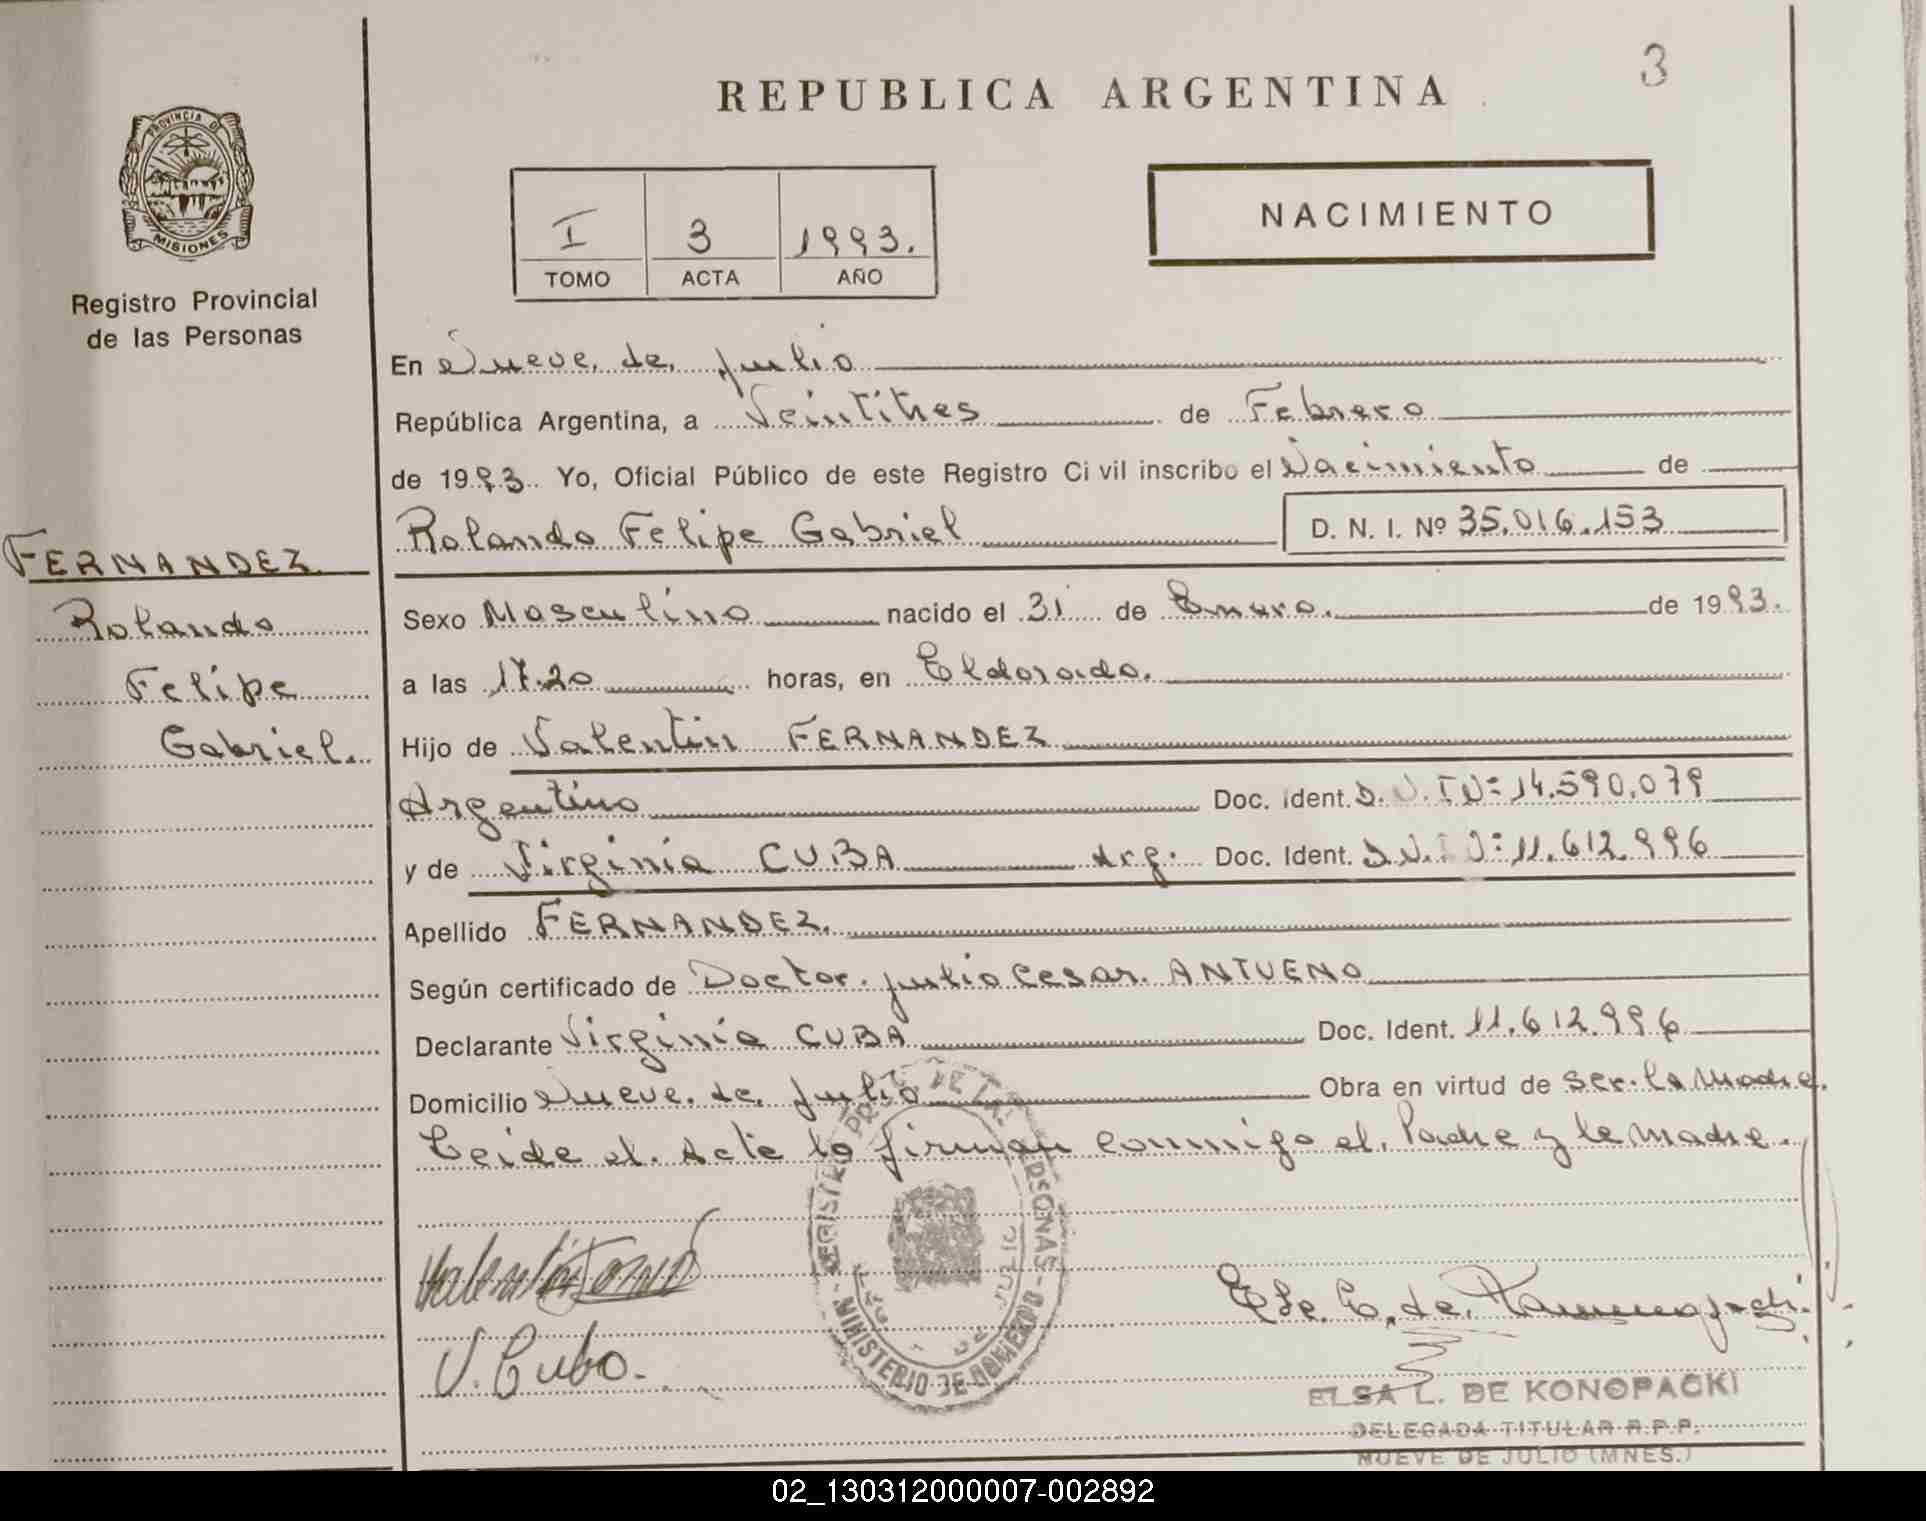 REPUBLICA ARGENTINA
3
PROVINCIA DE
MISIONES
Registro Provincial
de las Personas
I 3 1993.
TOMO ACTA AÑO
NACIMIENTO
En Nueve de Julio
República Argentina, a Veintitres de Febrero
de 1993. Yo, Oficial Público de este Registro Civil inscribo el Nacimiento de
Rolando Felipe Gabriel D. N. I. Nº 35.016.153
FERNANDEZ
Rolando
Felipe
Gabriel.
Sexo Masculino nacido el 31 de Enero. de 1993.
a las 17.20 horas, en Eldorado.
Hijo de Valentin FERNANDEZ
Argentino Doc. Ident. D.N.I Nº 14.590.079
y de Virginia CUBA Arg. Doc. Ident. D.N.I Nº 11.612.996
Apellido FERNANDEZ.
Según certificado de Doctor. Julio Cesar. ANTUENO
Declarante Virginia CUBA Doc. Ident. 11.612.996
Domicilio Nueve. de Julio Obra en virtud de ser. la Madre.
Leida el. Acta la firman conmigo el. Padre y la Madre.
REGISTRO PROV. DE LAS PERSONAS - MINISTERIO DE GOBIERNO
V. Cuba.
ELSA L. DE KONOPACKI
DELEGADA TITULAR R.P.P.
NUEVE DE JULIO (MNES.)
02_130312000007-002892